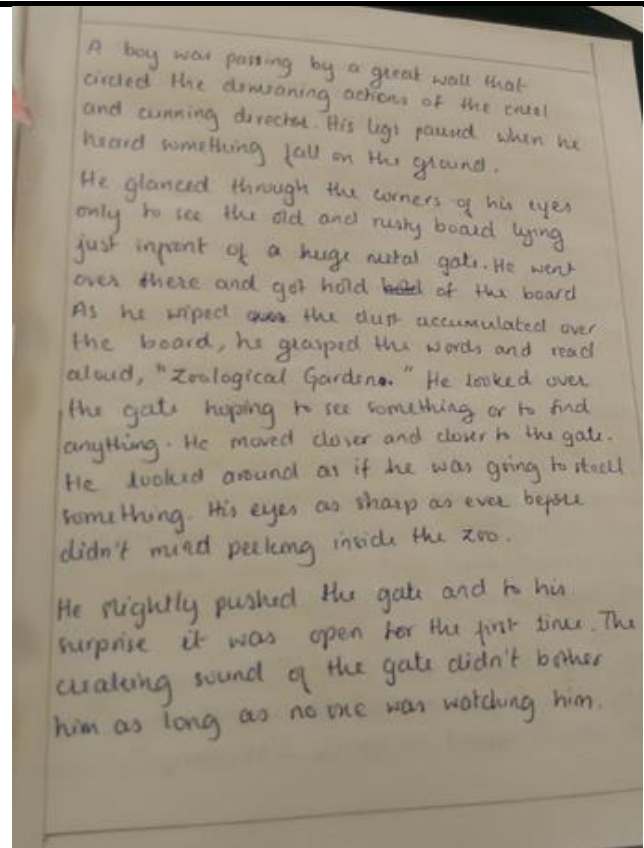 A boy was passing by a great wall that
circled the demeaning actions of the cruel
and cunning director. His legs paused when he
heard something fall on the ground.
He glanced through the corners of his eyes
only to see the old and rusty board lying
just infront of a huge metal gate. He went
over there and got hold of the board
As he wiped over the dust accumulated over
the board, he grasped the words and read
aloud, "Zoological Gardens." He looked over
the gate hoping to see something or to find
anything. He moved closer and closer to the gate.
He looked around as if he was going to steal
something. His eyes as sharp as ever before
didn't mind peeking inside the zoo.
He slightly pushed the gate and to his
surprise it was open for the first time. The
creaking sound of the gate didn't bother
him as long as no one was watching him.